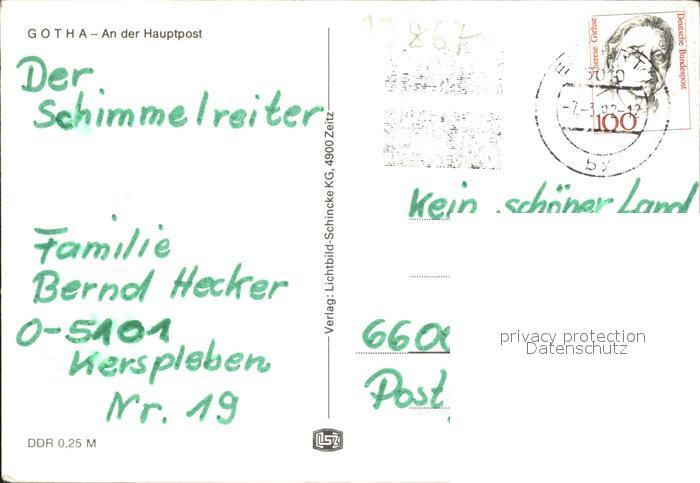 GOTHA – An der Hauptpost
Der
Schimmelreiter
Familie
Bernd Hecker
O-5101
Kerspleben
Nr. 19
DDR 0,25 M
Verlag: Lichtbild-Schincke KG, 4900 Zeitz
LSZ
Deutsche Bundespost
Therese Giehse
100
by
Kein schöner Land
660
Post
privacy protection
Datenschutz